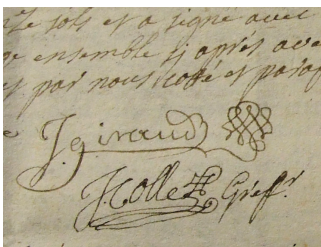 sols et a signé avec
ensemble cy aprés
par nous cotté et
J. giraud
J. Collet Greff.r